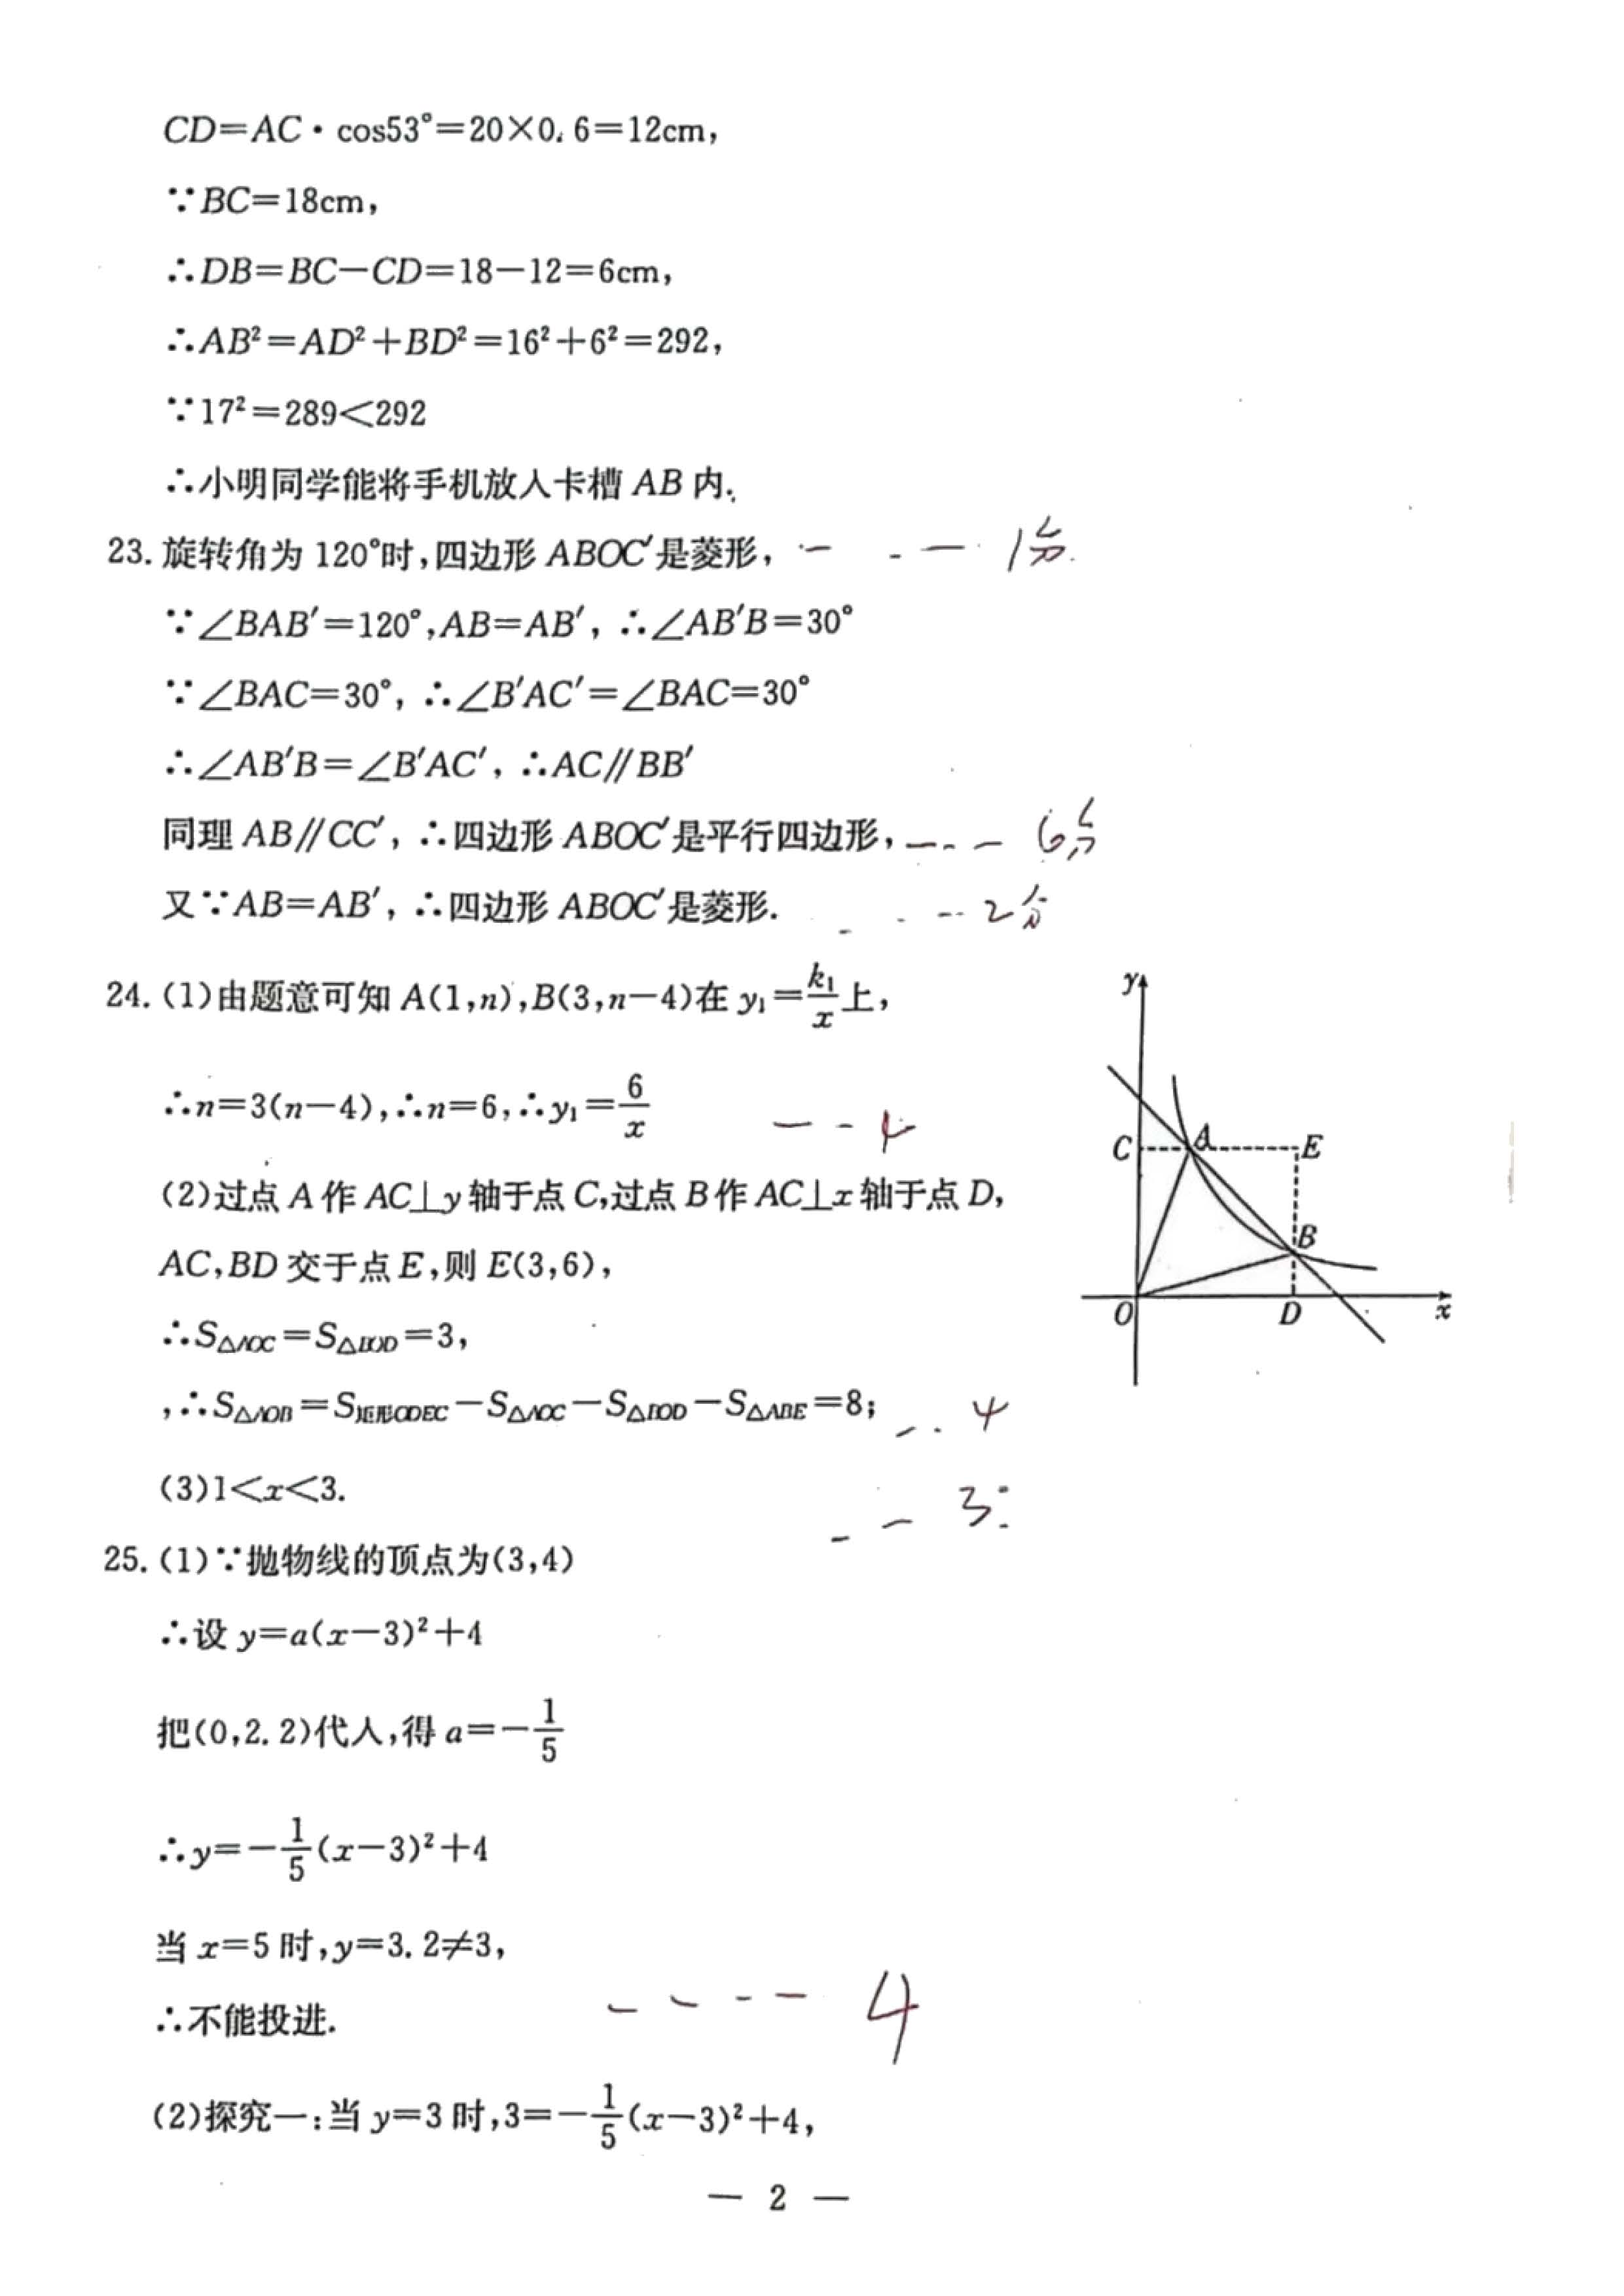 CD=AC·cos53°=20×0.6=12cm,
∵BC=18cm,
∴DB=BC-CD=18-12=6cm,
∴AB²=AD²+BD²=16²+6²=292,
∵17²=289<292
∴小明同学能将手机放入卡槽 AB 内.
23. 旋转角为 120°时,四边形 ABOC′是菱形, - - - 1分.
∵∠BAB′=120°,AB=AB′, ∴∠AB′B=30°
∵∠BAC=30°, ∴∠B′AC′=∠BAC=30°
∴∠AB′B=∠B′AC′, ∴AC∥BB′
同理 AB∥CC′, ∴四边形 ABOC′是平行四边形, - - - 6分
又∵AB=AB′, ∴四边形 ABOC′是菱形. - - - 2分
24. (1)由题意可知 A(1,n),B(3,n-4)在 y₁=k₁/x 上,
∴n=3(n-4),∴n=6,∴y₁=6/x - - 4
(2)过点 A 作 AC⊥y 轴于点 C,过点 B 作 AC⊥x 轴于点 D,
AC,BD 交于点 E,则 E(3,6),
∴S△AOC=S△BOD=3,
,∴S△AOB=S矩形ODEC-S△AOC-S△BOD-S△ABE=8; - - 4
(3)1<x<3. - - 3
y
C
A
E
B
O
D
x
25. (1)∵抛物线的顶点为(3,4)
∴设 y=a(x-3)²+4
把(0,2.2)代人,得 a=-1/5
∴y=-1/5(x-3)²+4
当 x=5 时,y=3.2≠3,
∴不能投进. - - - - 4
(2)探究一:当 y=3 时,3=-1/5(x-3)²+4,
— 2 —